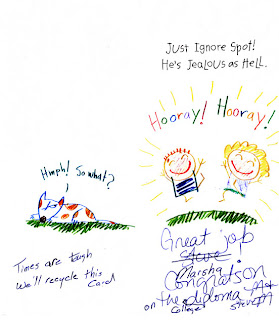 Just Ignore Spot!
He's Jealous as Hell.
Hooray! Hooray!
Hmph! So what?
Times are tough
We'll recycle this
Card
Great job
Steve
Marsha
Congrats on
on the diploma
College
Steve